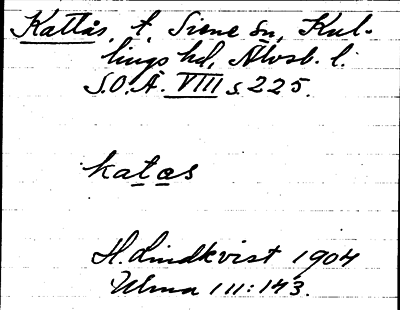 Kattås, t, Siene sn, Kul-
lings hd, Älvsb. l.
S.O.Ä. VIII s. 225.
katas
H. Lindkvist 1904
Ulma 111:143.